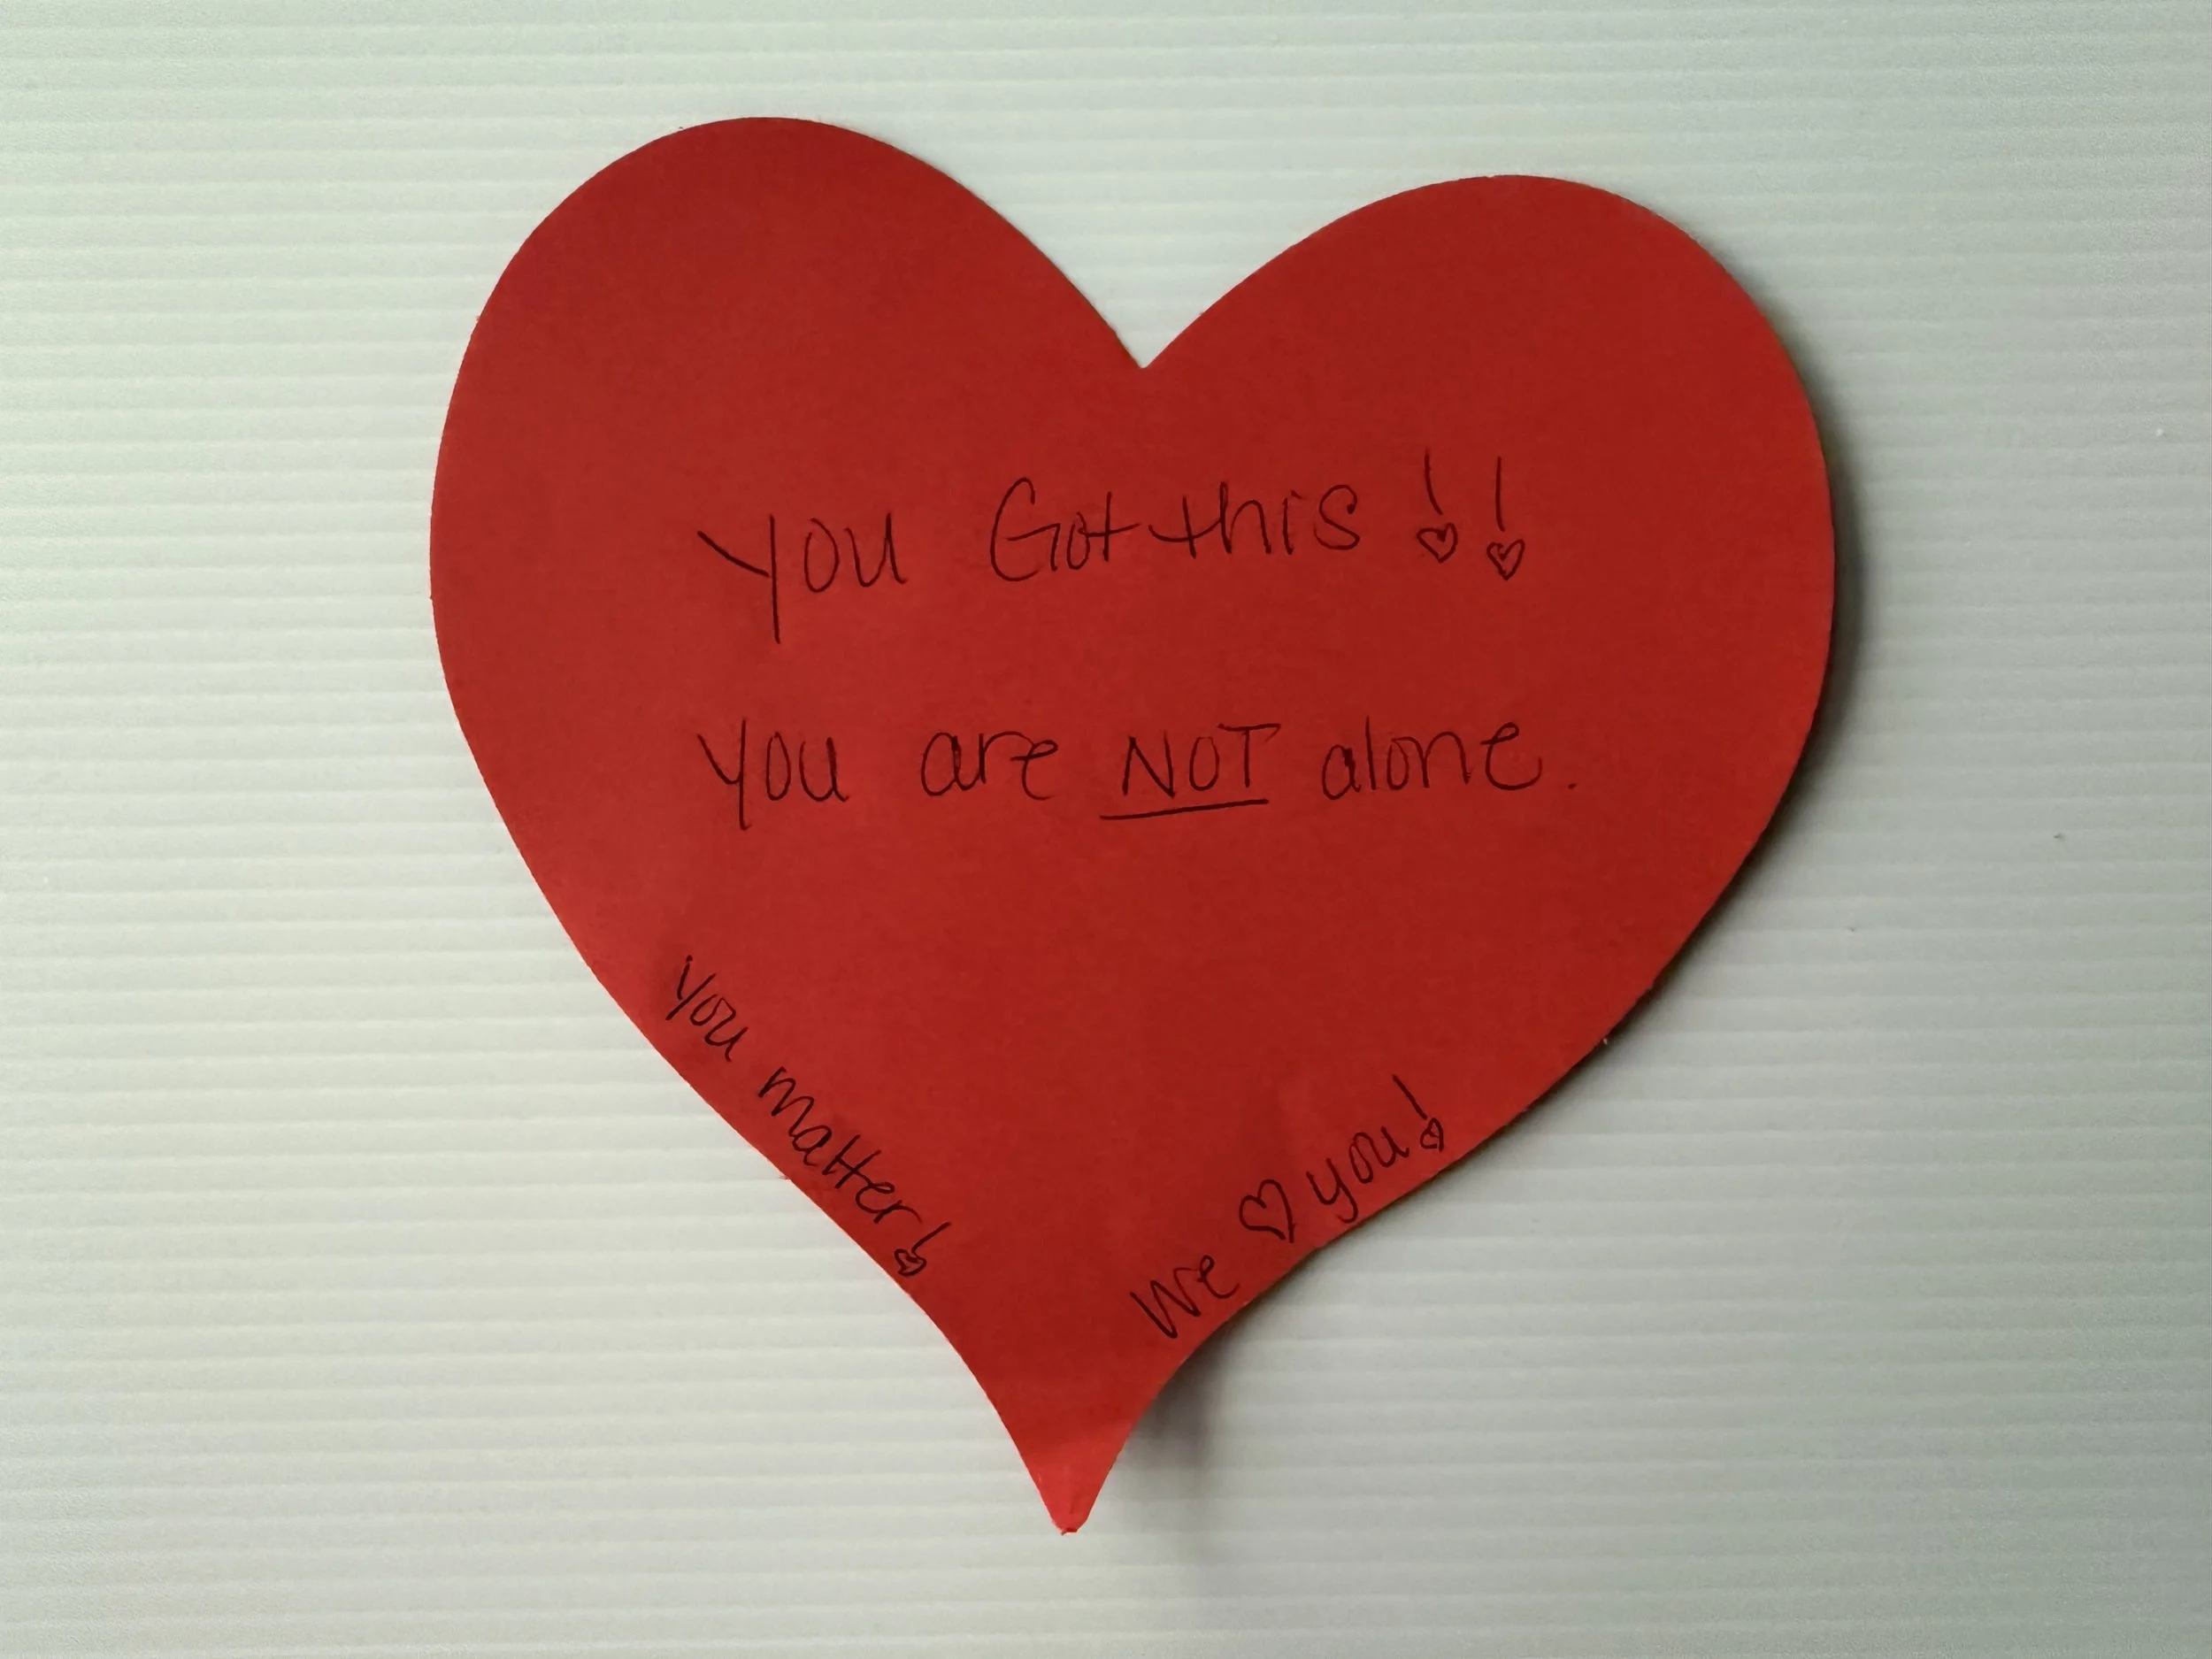 you Got this!!
you are NOT alone.
you matter!
we ♡ you!